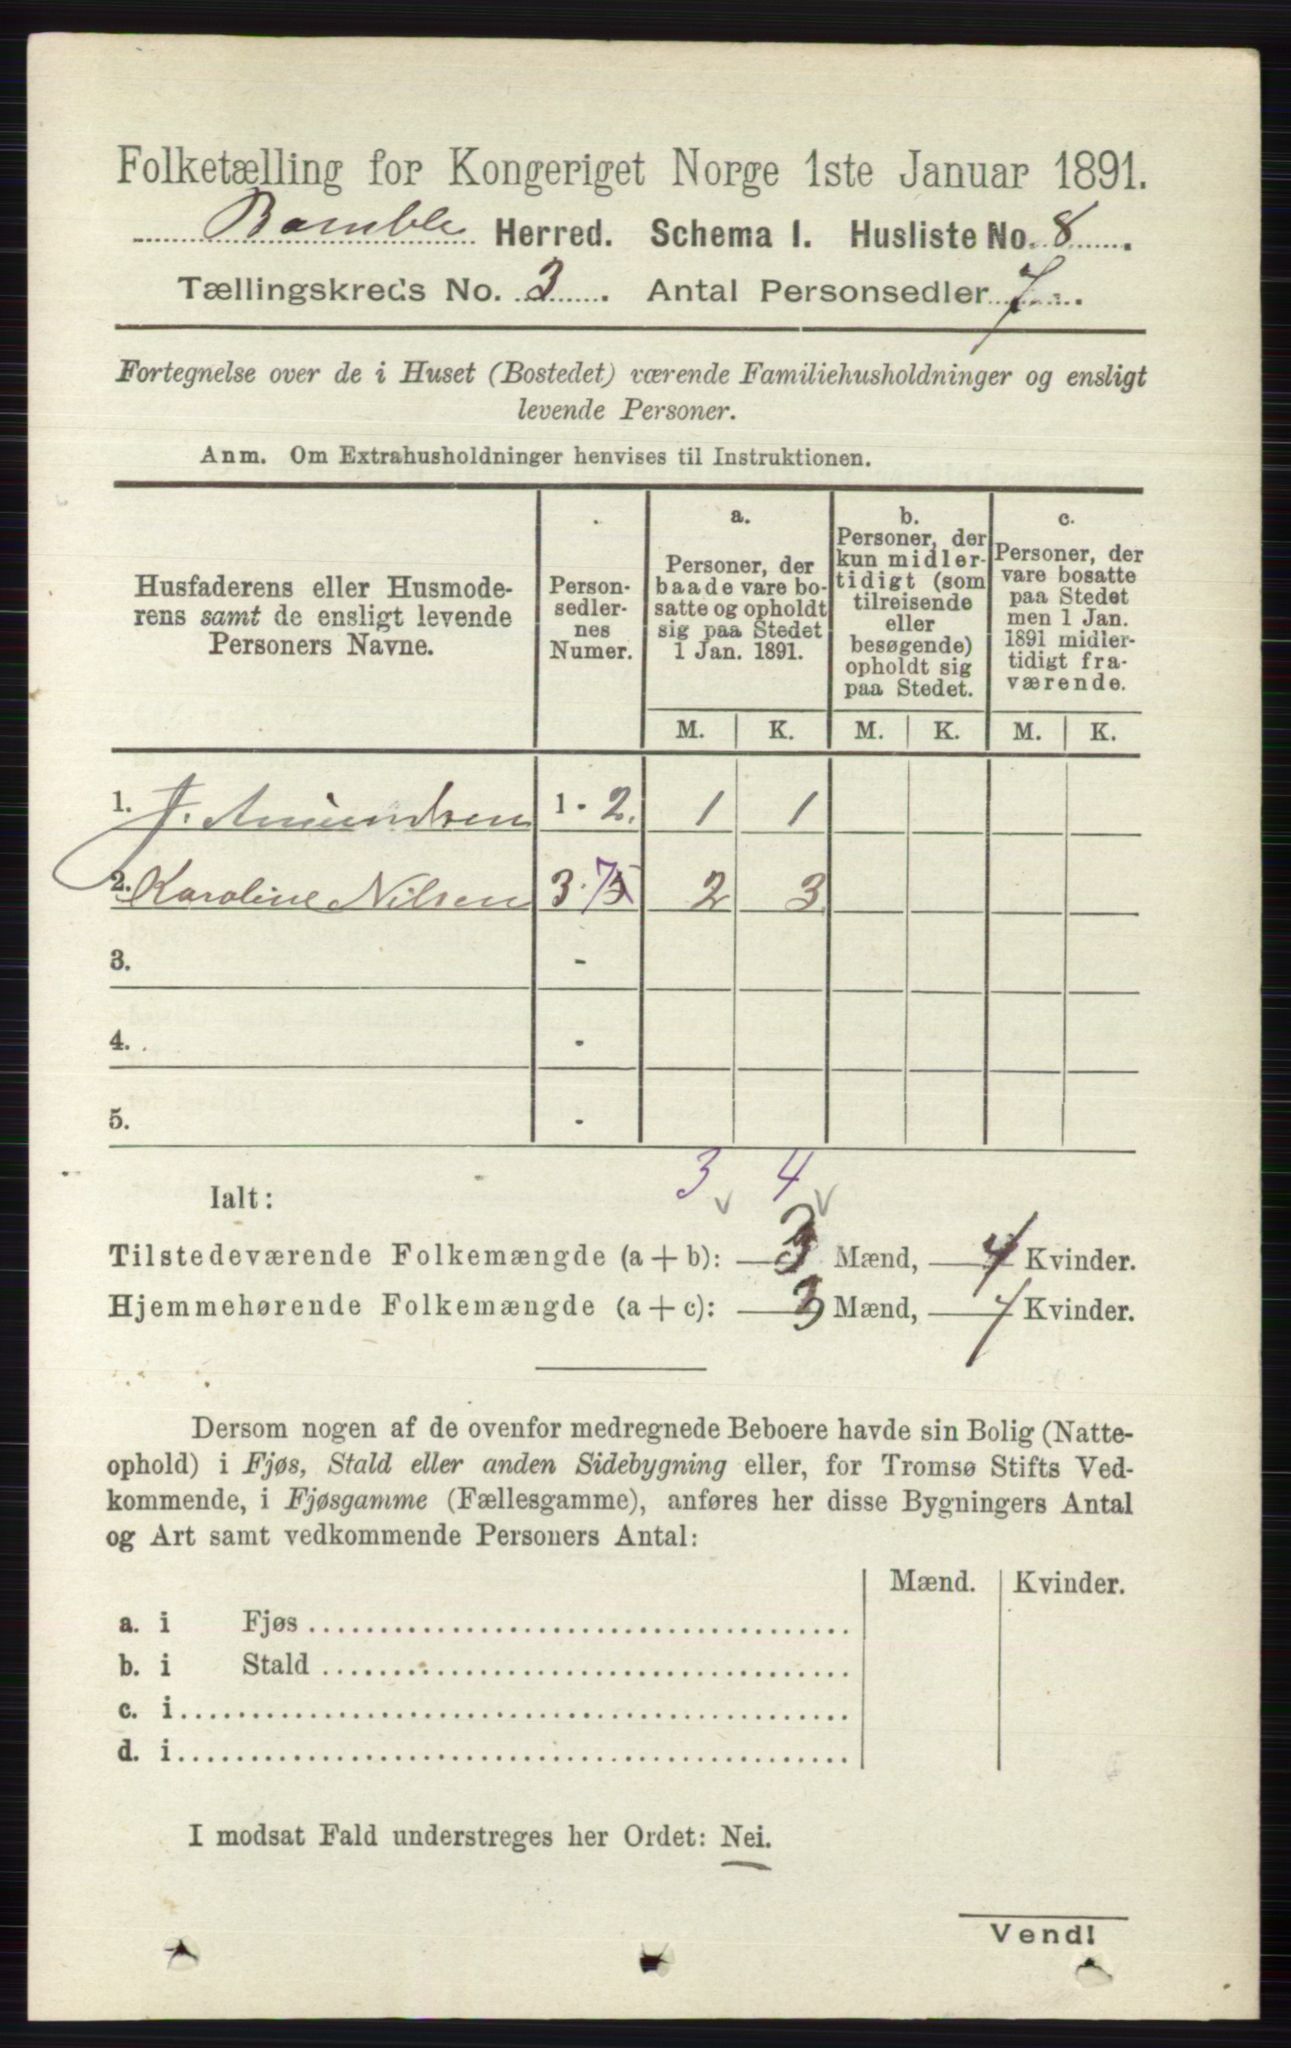 Folketælling for Kongeriget Norge 1ste Januar 1891.
Bamble Herred. Schema I. Husliste No. 8.
Tællingskreds No. 3. Antal Personsedler 7.
Fortegnelse over de i Huset (Bostedet) værende Familiehusholdninger og ensligt
levende Personer.
Anm. Om Extrahusholdninger henvises til Instruktionen.
Husfaderens eller Husmode-
rens samt de ensligt levende
Personers Navne.
Person-
sedler-
nes
Numer.
a.
Personer, der
baade vare bo-
satte og opholdt
sig paa Stedet
1 Jan. 1891.
b.
Personer, der
kun midler-
tidigt (som
tilreisende
eller
besøgende)
opholdt sig
paa Stedet.
c.
Personer, der
vare bosatte
paa Stedet
men 1 Jan.
1891 midler-
tidigt fra-
værende.
M. K. M. K. M. K.
1. J. Amundsen 1 - 2. 1 1
2. Karoline Nilsen 3 - 7 2 3
3. -
4. -
5. -
3 4
Ialt:
Tilstedeværende Folkemængde (a + b): 3 Mænd, 4 Kvinder.
Hjemmehørende Folkemængde (a + c): 3 Mænd, 4 Kvinder.
Dersom nogen af de ovenfor medregnede Beboere havde sin Bolig (Natte-
ophold) i Fjøs, Stald eller anden Sidebygning eller, for Tromsø Stifts Ved-
kommende, i Fjøsgamme (Fællesgamme), anføres her disse Bygningers Antal
og Art samt vedkommende Personers Antal:
Mænd. Kvinder.
a. i Fjøs
b. i Stald
c. i
d. i
I modsat Fald understreges her Ordet: Nei.
Vend!